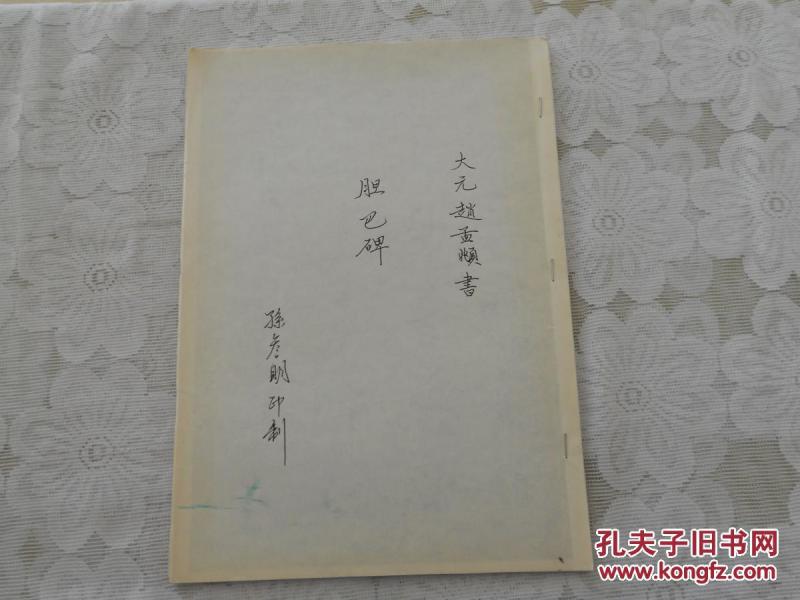 大元趙孟頫書
胆巴碑
孫彦明印制
孔夫子旧书网
www.kongfz.com